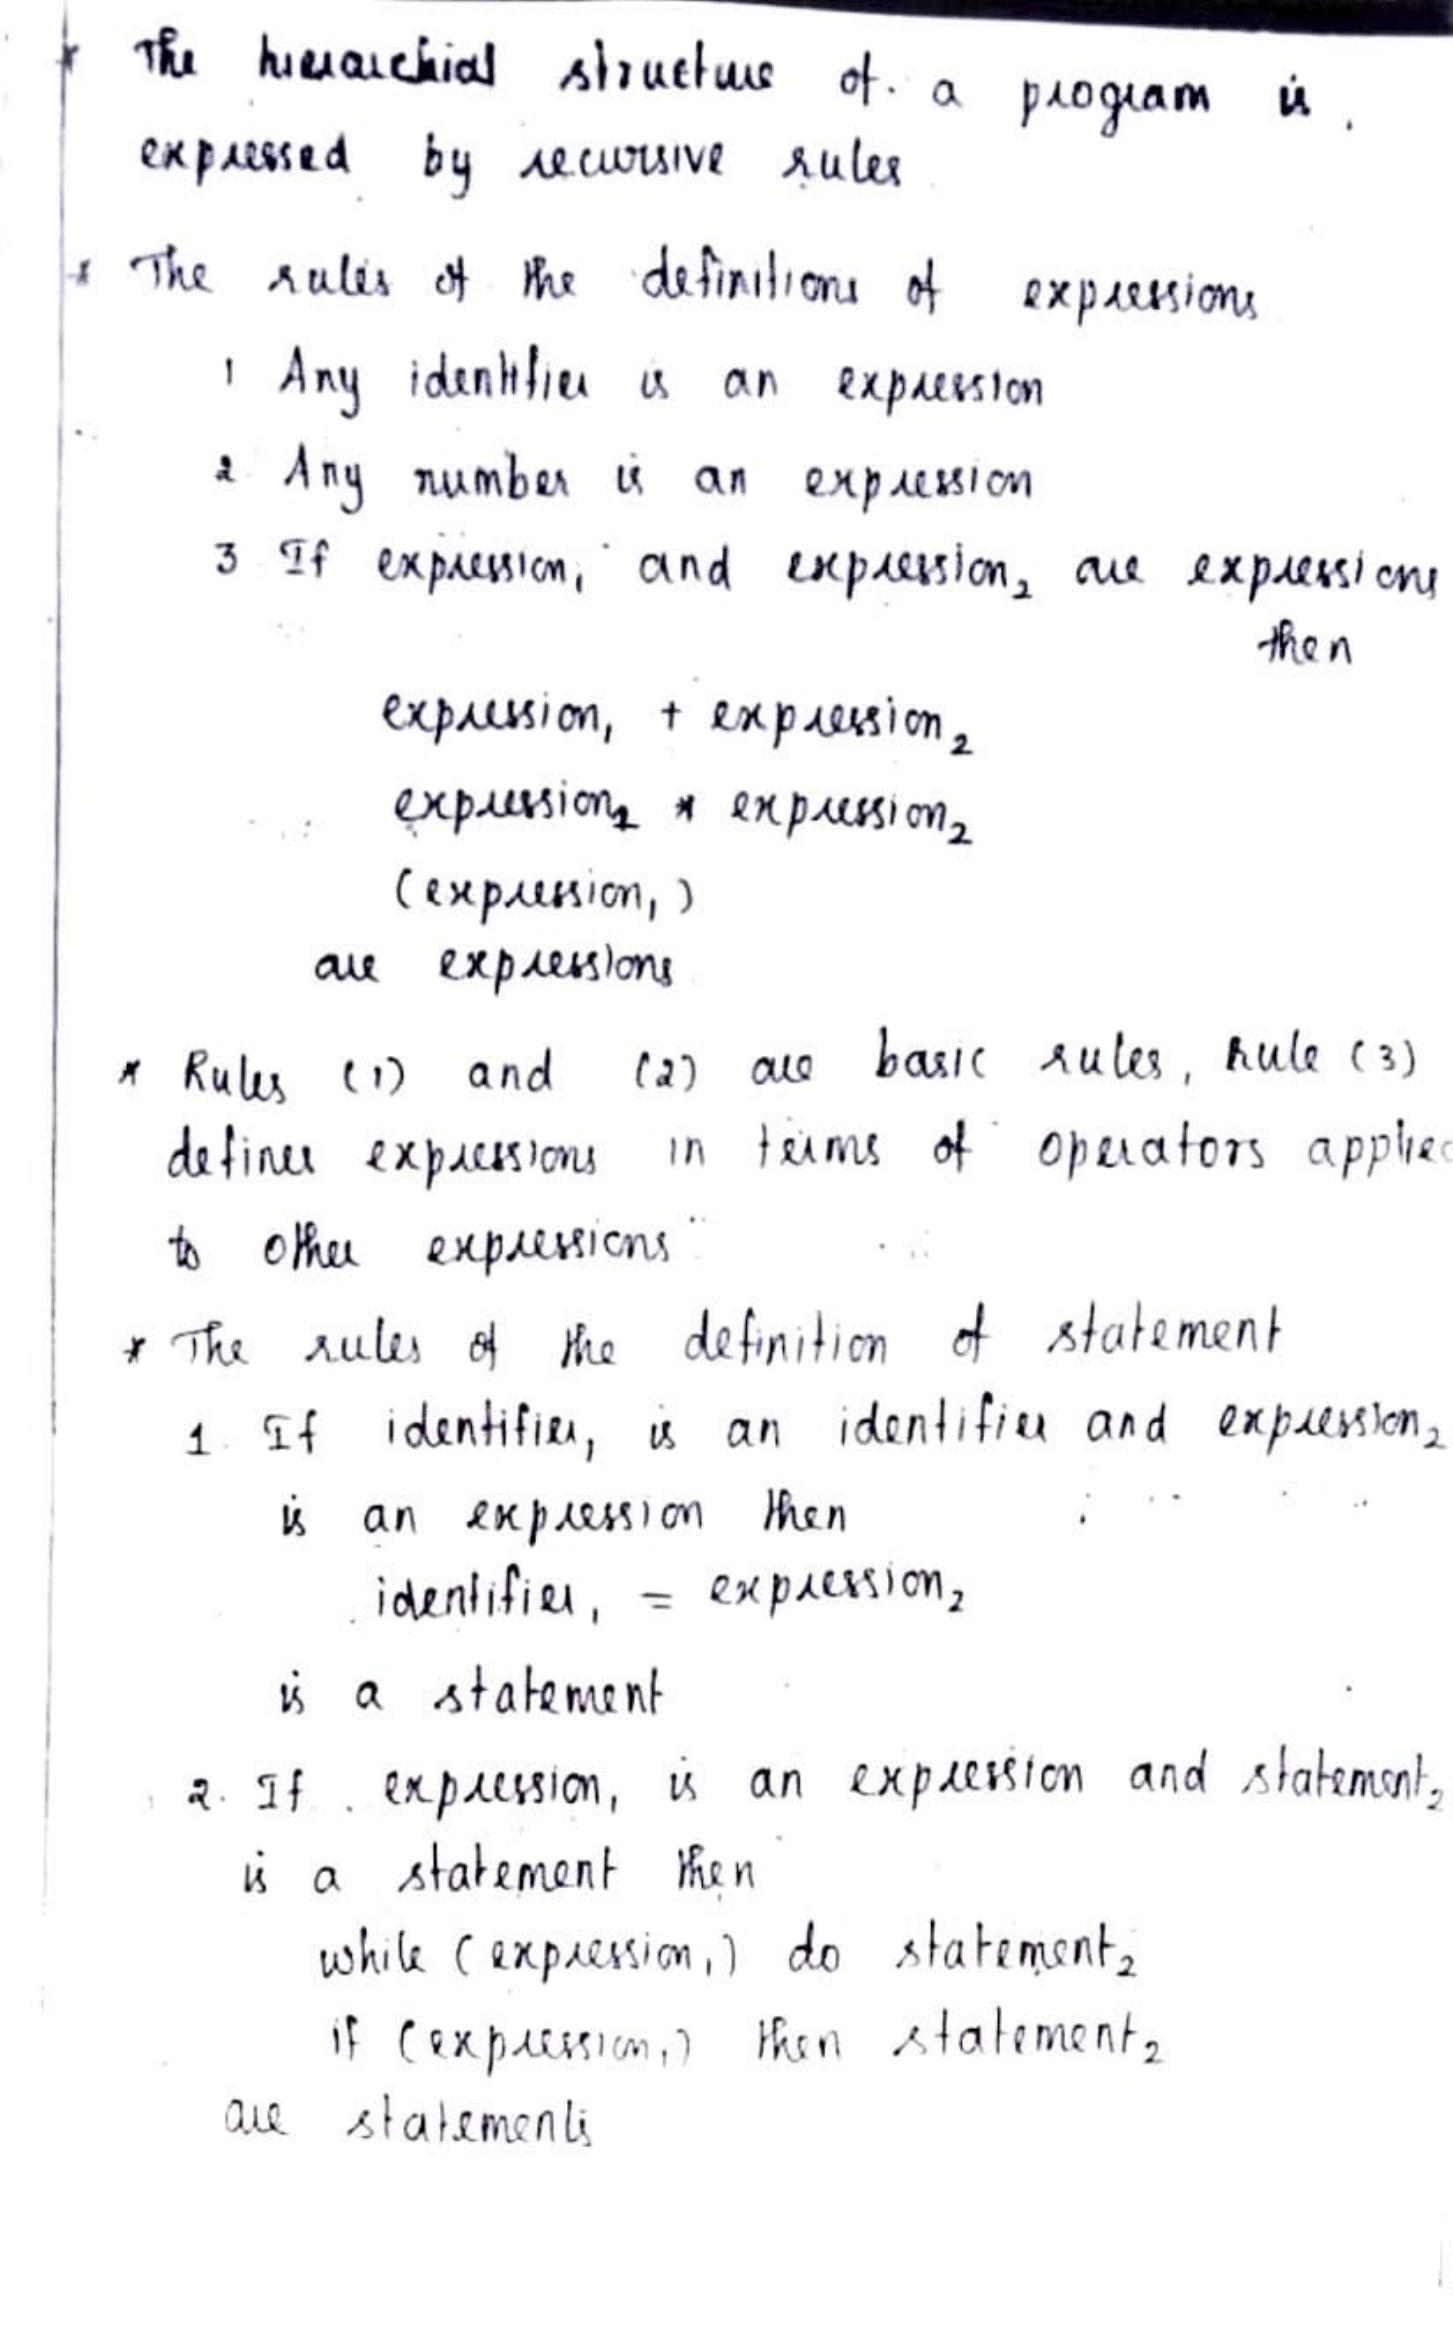 * The hierarchial structure of a program is
expressed by recursive rules
* The rules of the definitions of expressions
1 Any identifier is an expression
2 Any number is an expression
3 If expression₁ and expression₂ are expressions
then
expression₁ + expression₂
expression₁ * expression₂
(expression₁)
are expressions
* Rules (1) and (2) are basic rules, Rule (3)
defines expressions in terms of operators applied
to other expressions
* The rules of the definition of statement
1. If identifier₁ is an identifier and expression₂
is an expression then
identifier₁ = expression₂
is a statement
2. If expression₁ is an expression and statement₂
is a statement then
while (expression₁) do statement₂
if (expression₁) then statement₂
are statements